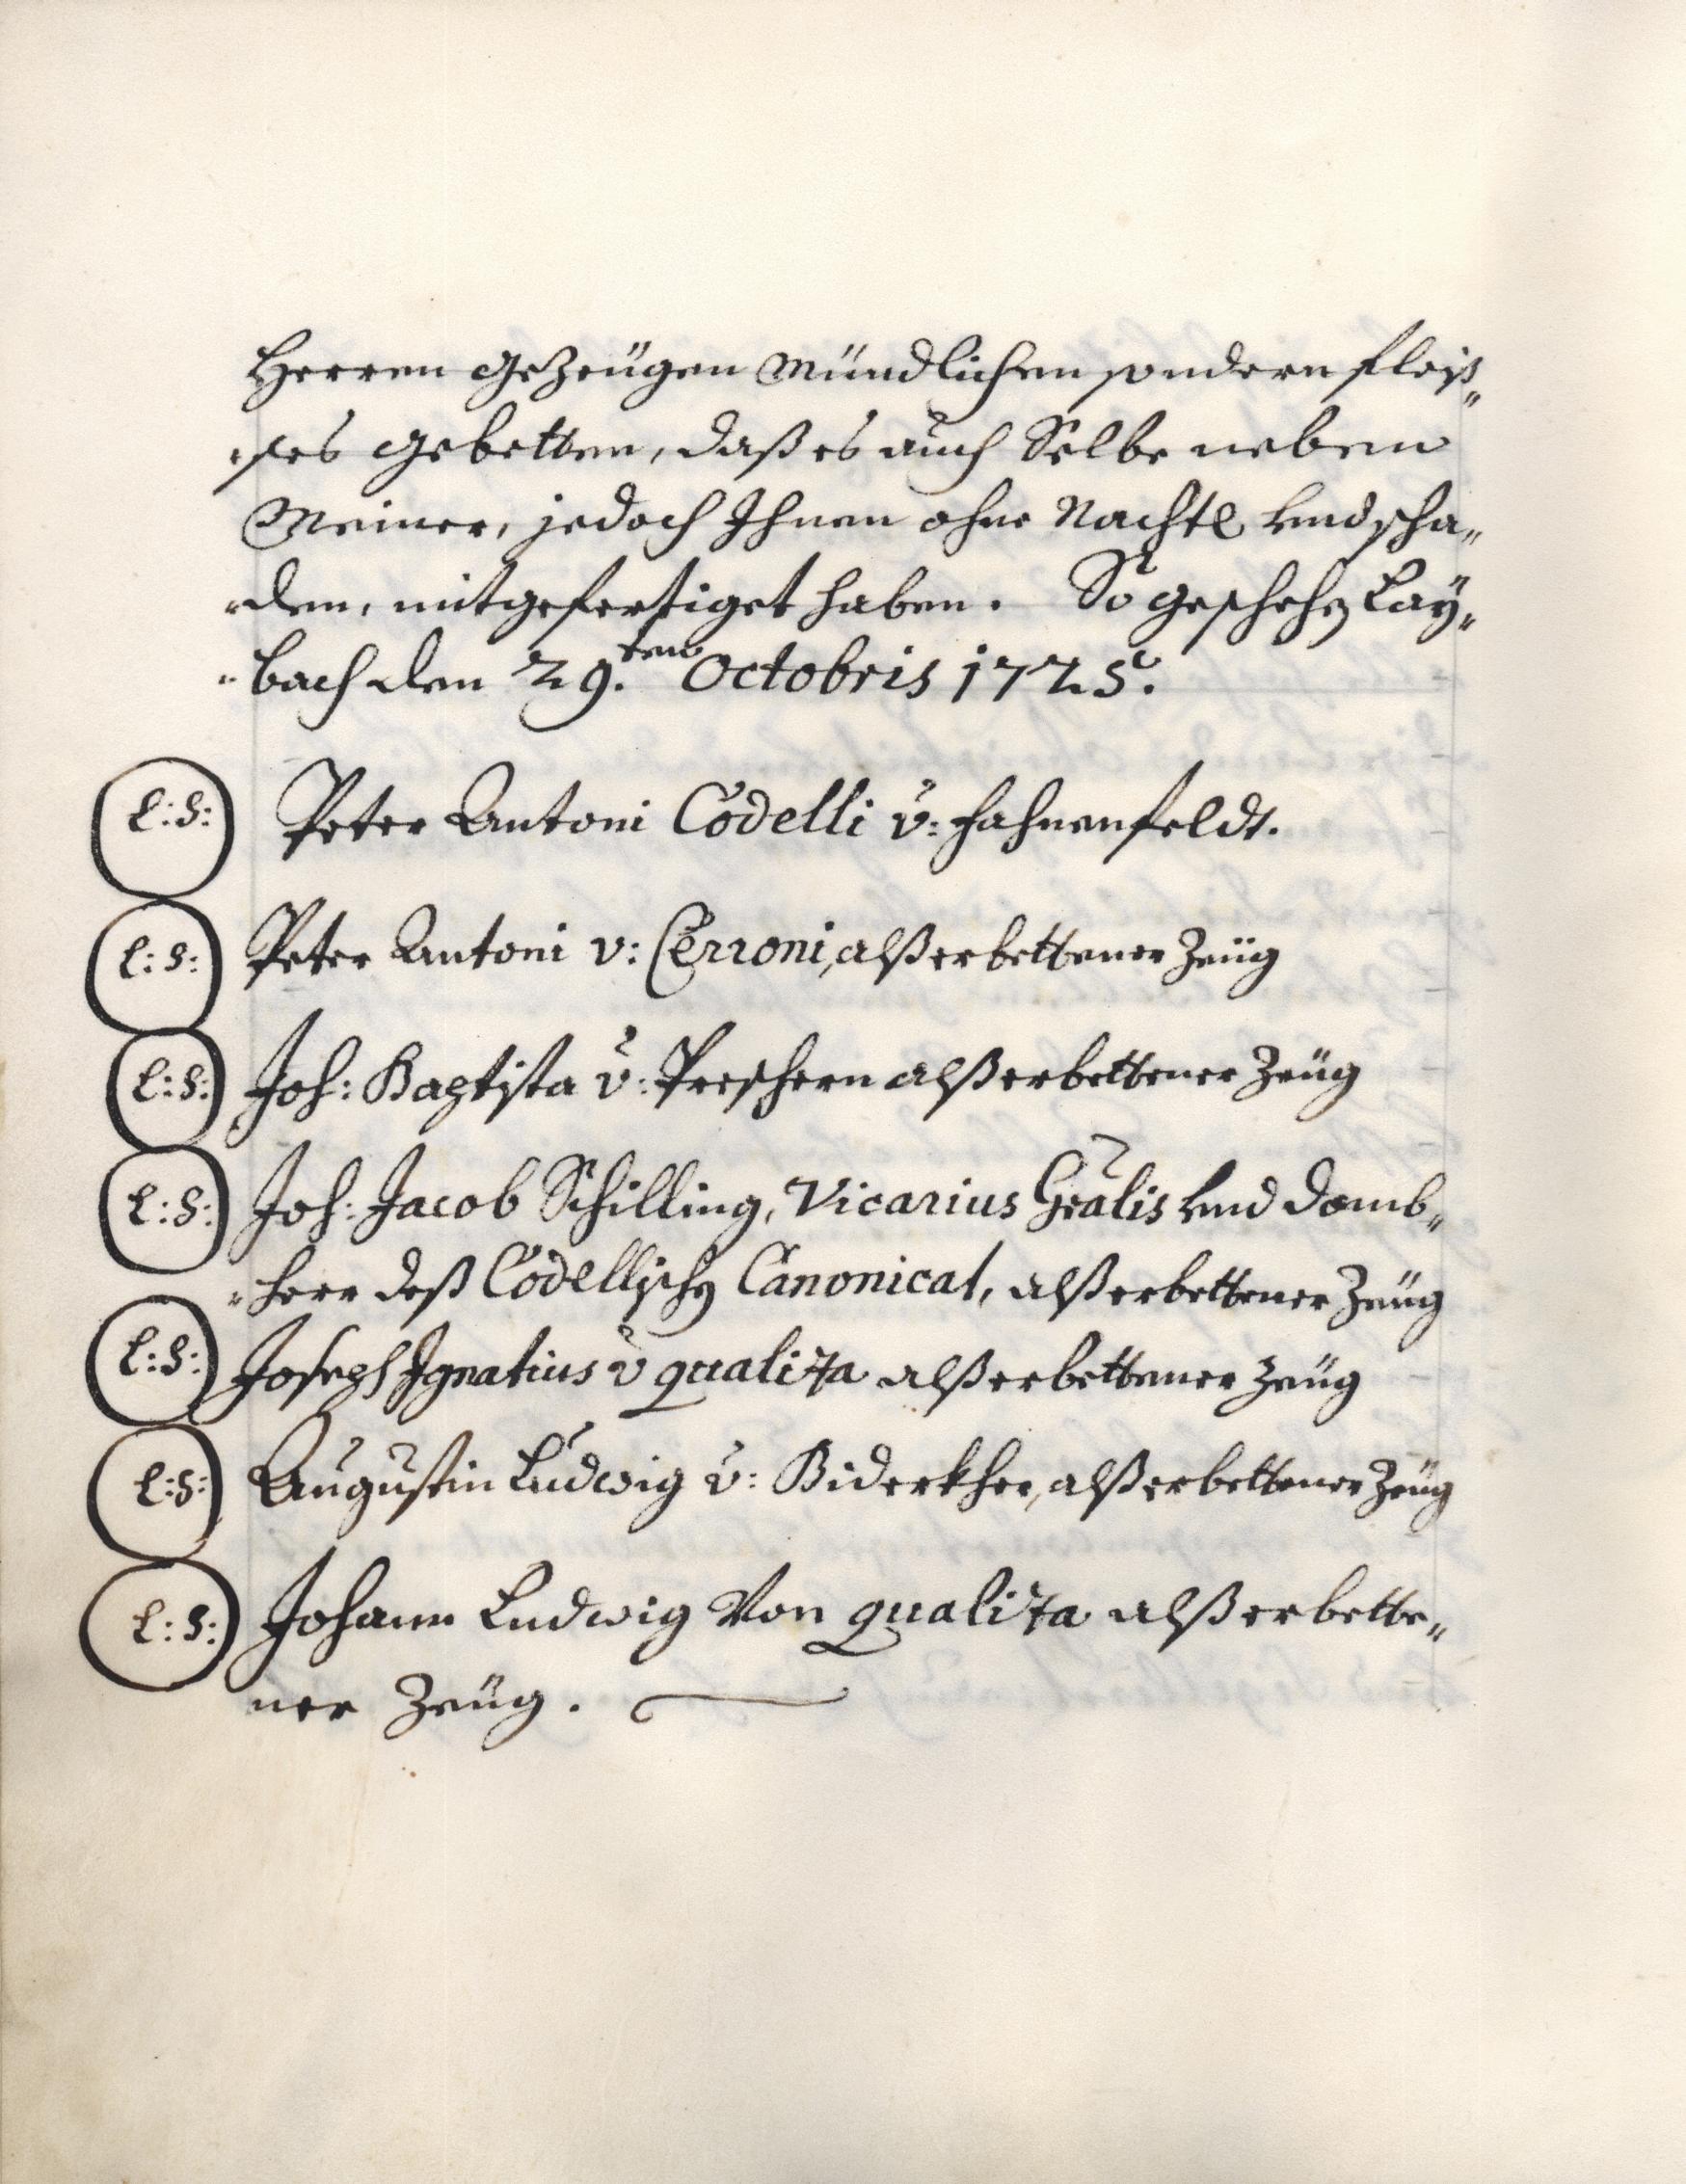 Herren Gezeügen Mündlichen sondern fleiß„
„ses gebetten, daß es auch Selbe neben
Meiner, jedoch Ihnen ohne Nachtl vnd scha„
„den, mitgefertiget haben. So geschehen Lay„
„bach den 29.ten Octobris 1725.
L:S: Peter Antoni Codelli v: Fahnenfeldt.
L:S: Peter Antoni v: Cerroni, alß erbettener Zeüg
L:S: Joh: Baptista v: Preschern alß erbettener Zeüg
L:S: Joh: Jacob Schilling, Vicarius Grālis vnd Domb„
„herr deß Codellischen Canonicat, alß erbettener Zeüg
L:S: Joseph Ignatius v qualiza alß erbettener Zeüg
L:S: Augustin Ludwig v: Biderkher, alß erbettener Zeüg
L:S: Johann Ludwig Von qualiza alß erbette„
ner Zeüg.